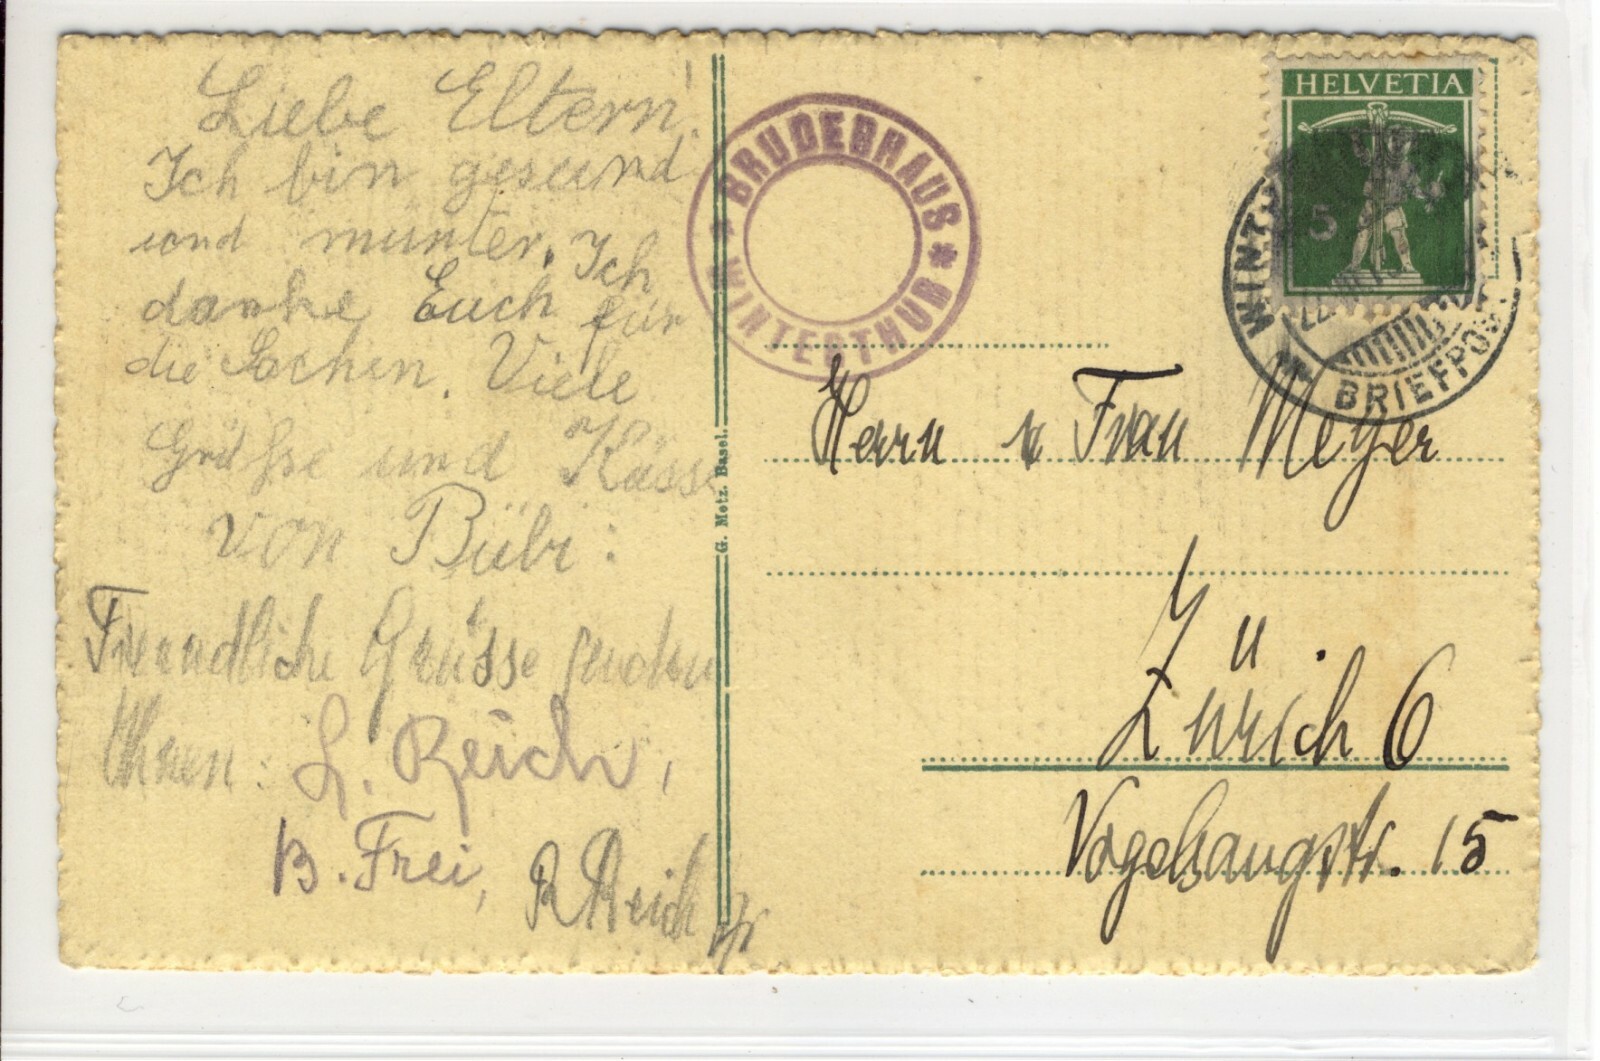 Liebe Eltern!
Ich bin gesund
und munter. Ich
danke Euch für
die Sachen. Viele
Grüße und Küsse
von Bübi:
Freundliche Grüsse senden
Ihnen: L. Reich,
B. Frei, R Reich
G. Metz, Basel.
* BRUDERHAUS *
WINTERTHUR
HELVETIA
5
BRIEFPOST
Herrn u Frau Meyer
Zürich 6
Vogelsangstr. 15